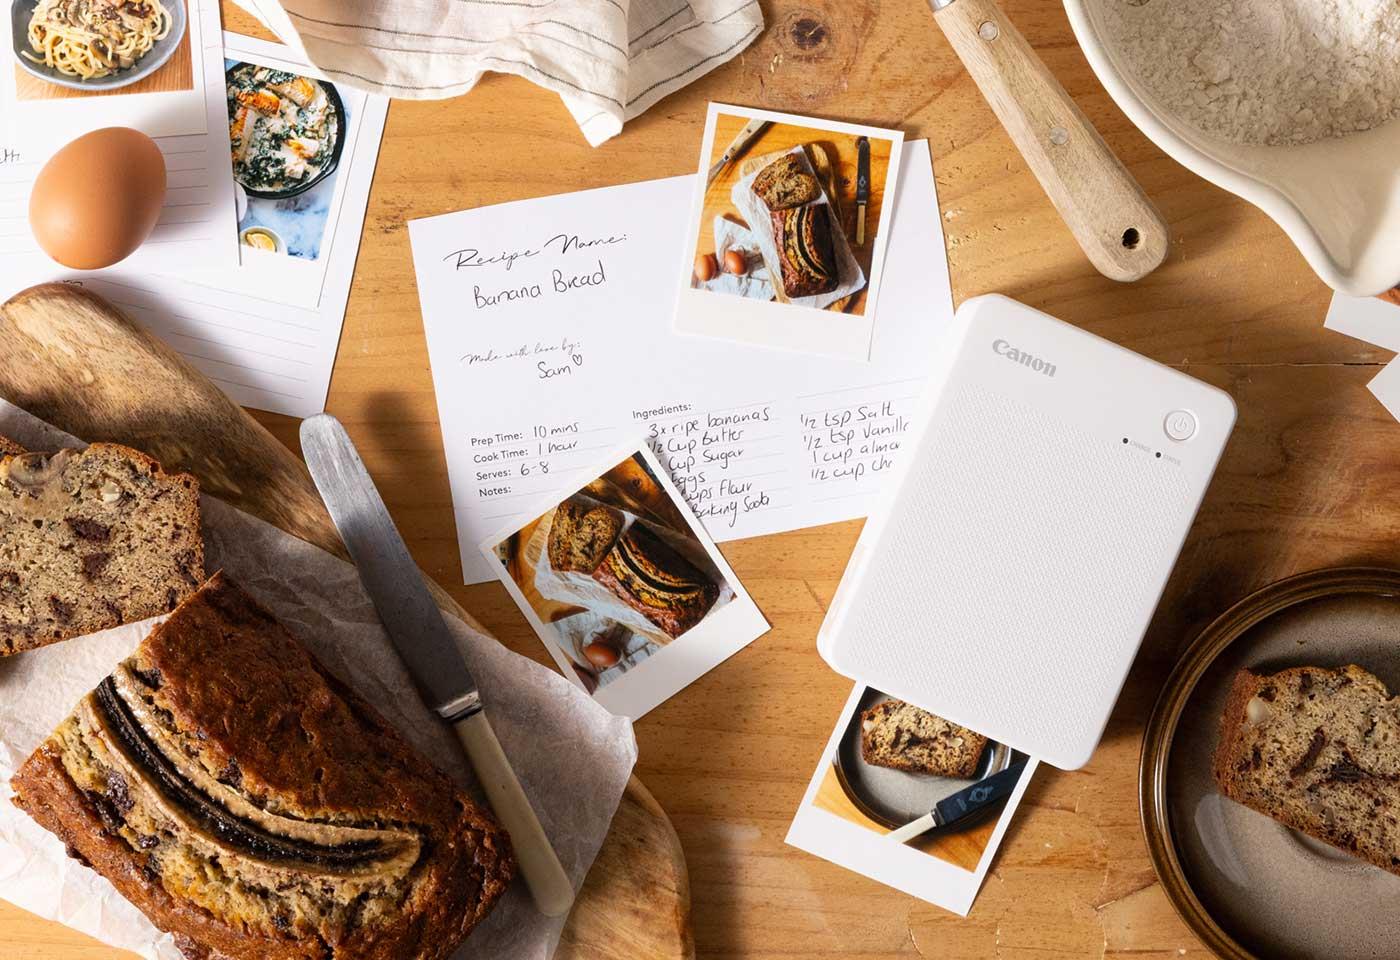 Recipe Name:
Banana Bread
Made with love by:
Sam
Prep Time: 10 mins
Cook Time: 1 hour
Serves: 6-8
Notes:
Ingredients:
3x ripe bananas
1/2 Cup butter
Cup Sugar
Eggs
cups flour
Baking Soda
1/2 tsp Salt
1/2 tsp Vanill
1 cup almo
1/2 cup ch
Canon
CHARGE
STATUS